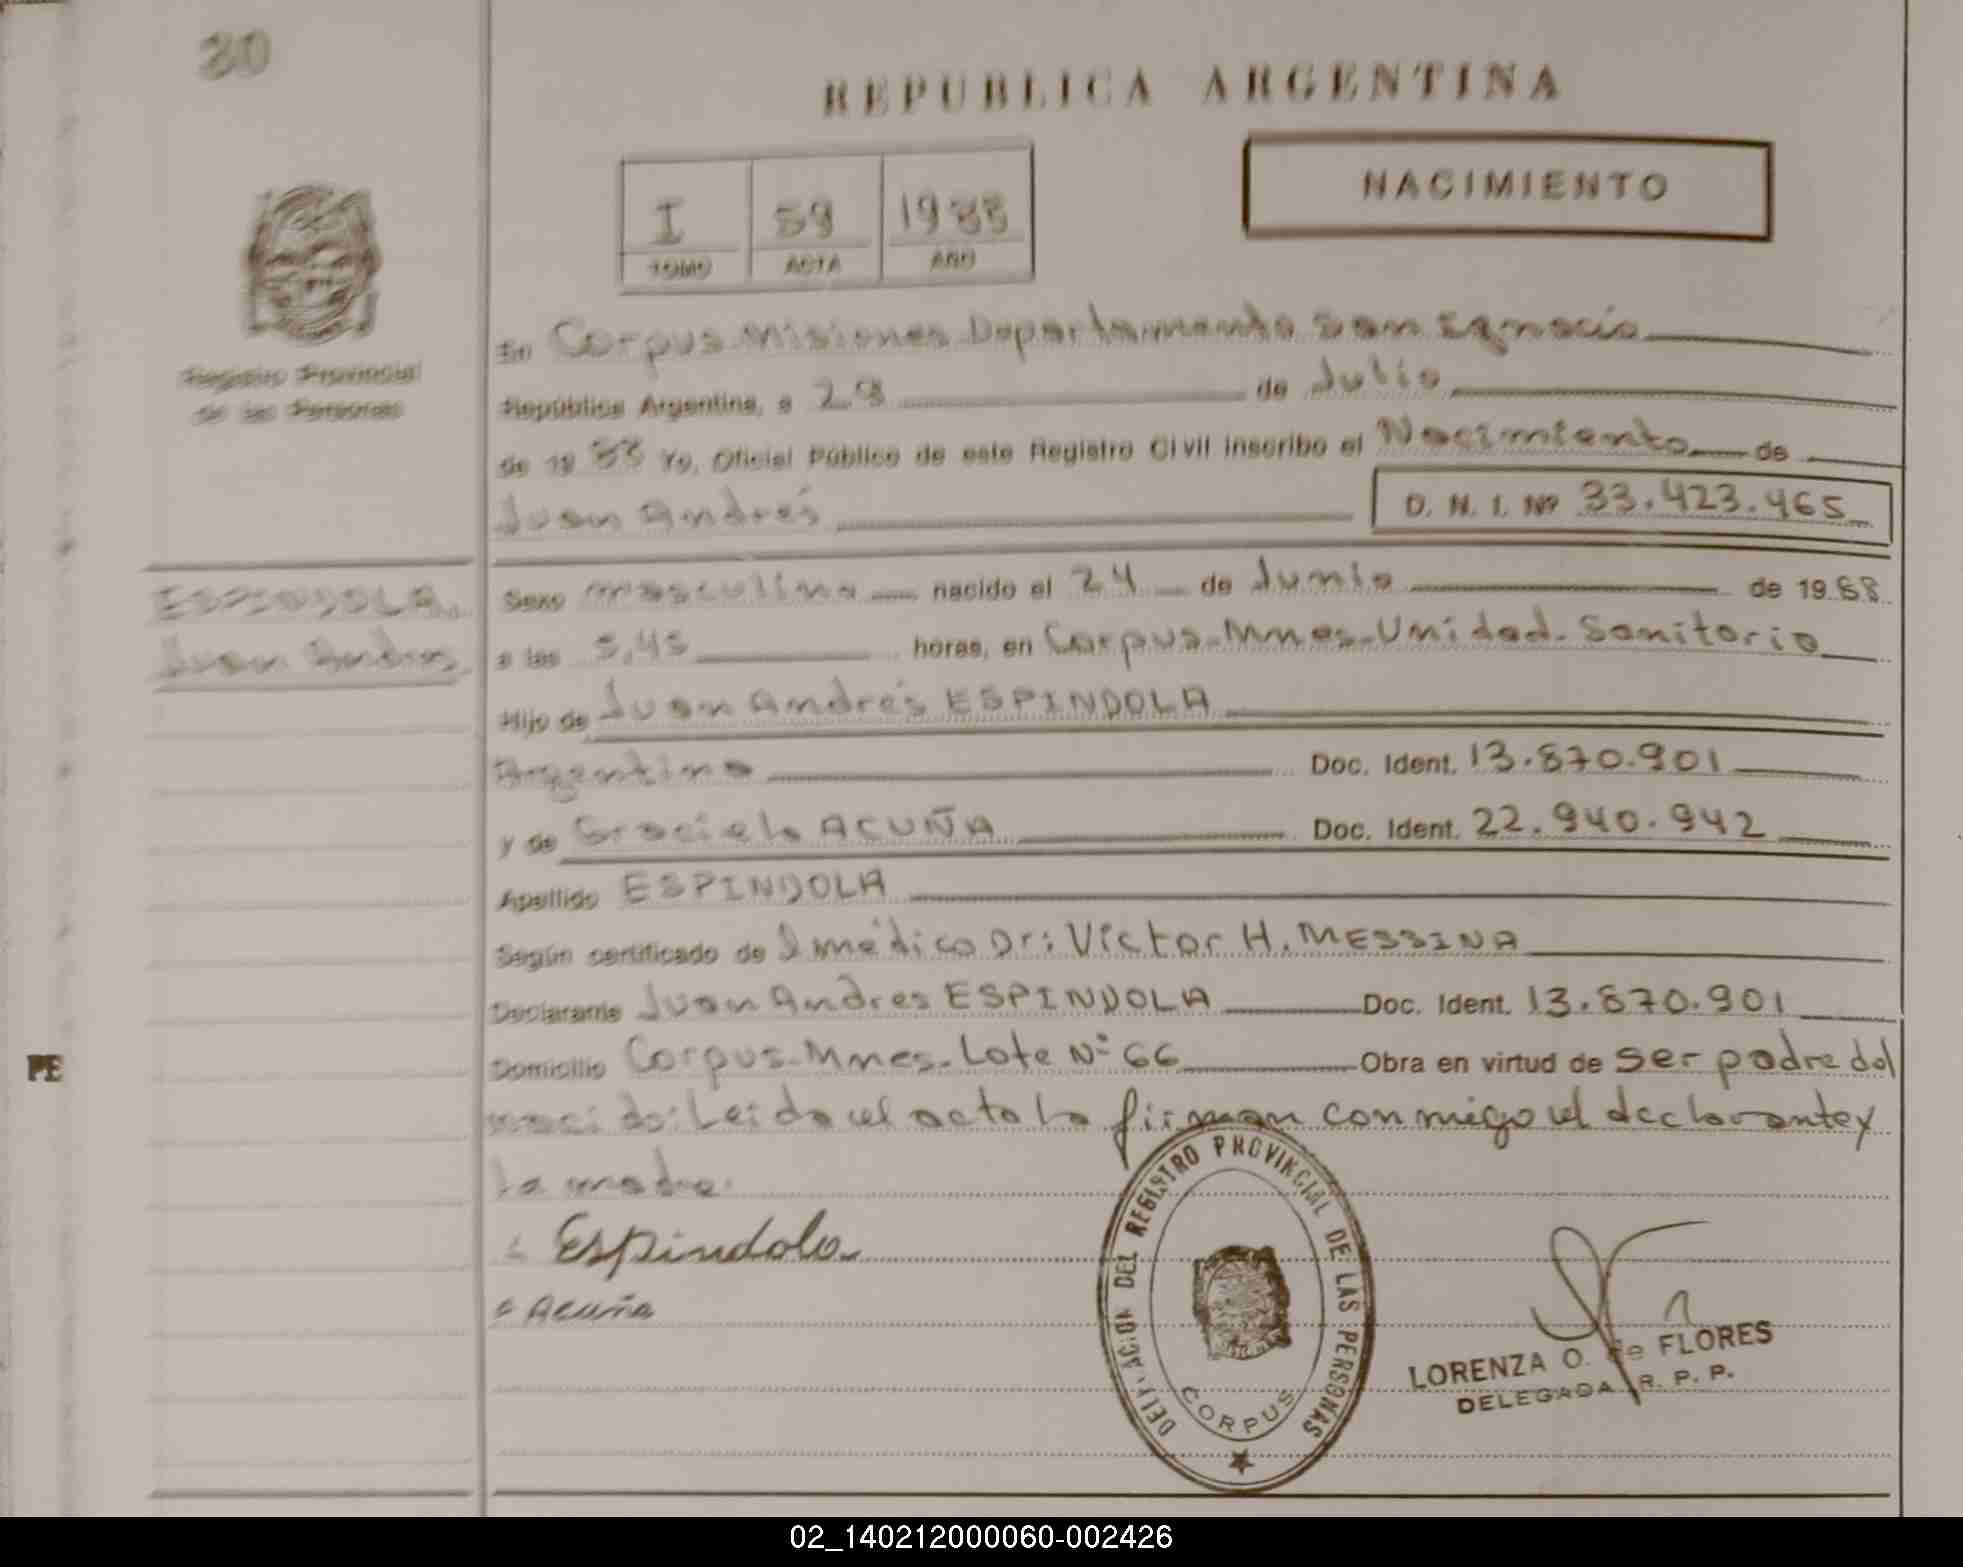 30
REPUBLICA ARGENTINA
NACIMIENTO
I 59 1988
TOMO ACTA AÑO
Registro Provincial
de las Personas
En Corpus-Misiones-Departamento San Ignacio
República Argentina, a 28 de Julio
de 19 88 Yo, Oficial Público de este Registro Civil inscribo el Nacimiento de
Juan Andrés D. N. I. Nº 33.423.465
ESPINDOLA.
Juan Andres
Sexo masculino nacido el 24 de Junio de 19 88
a las 5,45 horas, en Corpus-Mnes-Unidad-Sanitaria
Hijo de Juan Andrés ESPINDOLA
Argentino Doc. Ident. 13.870.901
y de Graciela ACUÑA Doc. Ident. 22.940.942
Apellido ESPINDOLA
Según certificado de l médico Dr: Víctor H. MESSINA
Declarante Juan Andres ESPINDOLA Doc. Ident. 13.870.901
Domicilio Corpus-Mnes-Lote Nº 66 Obra en virtud de ser padre del
nacido: Leida el acta la firman conmigo el declarante y
la madre.
Espindola
Acuña
DELEGACION DEL REGISTRO PROVINCIAL DE LAS PERSONAS
CORPUS
LORENZA O. de FLORES
DELEGADA R. P. P.
PE
02_140212000060-002426